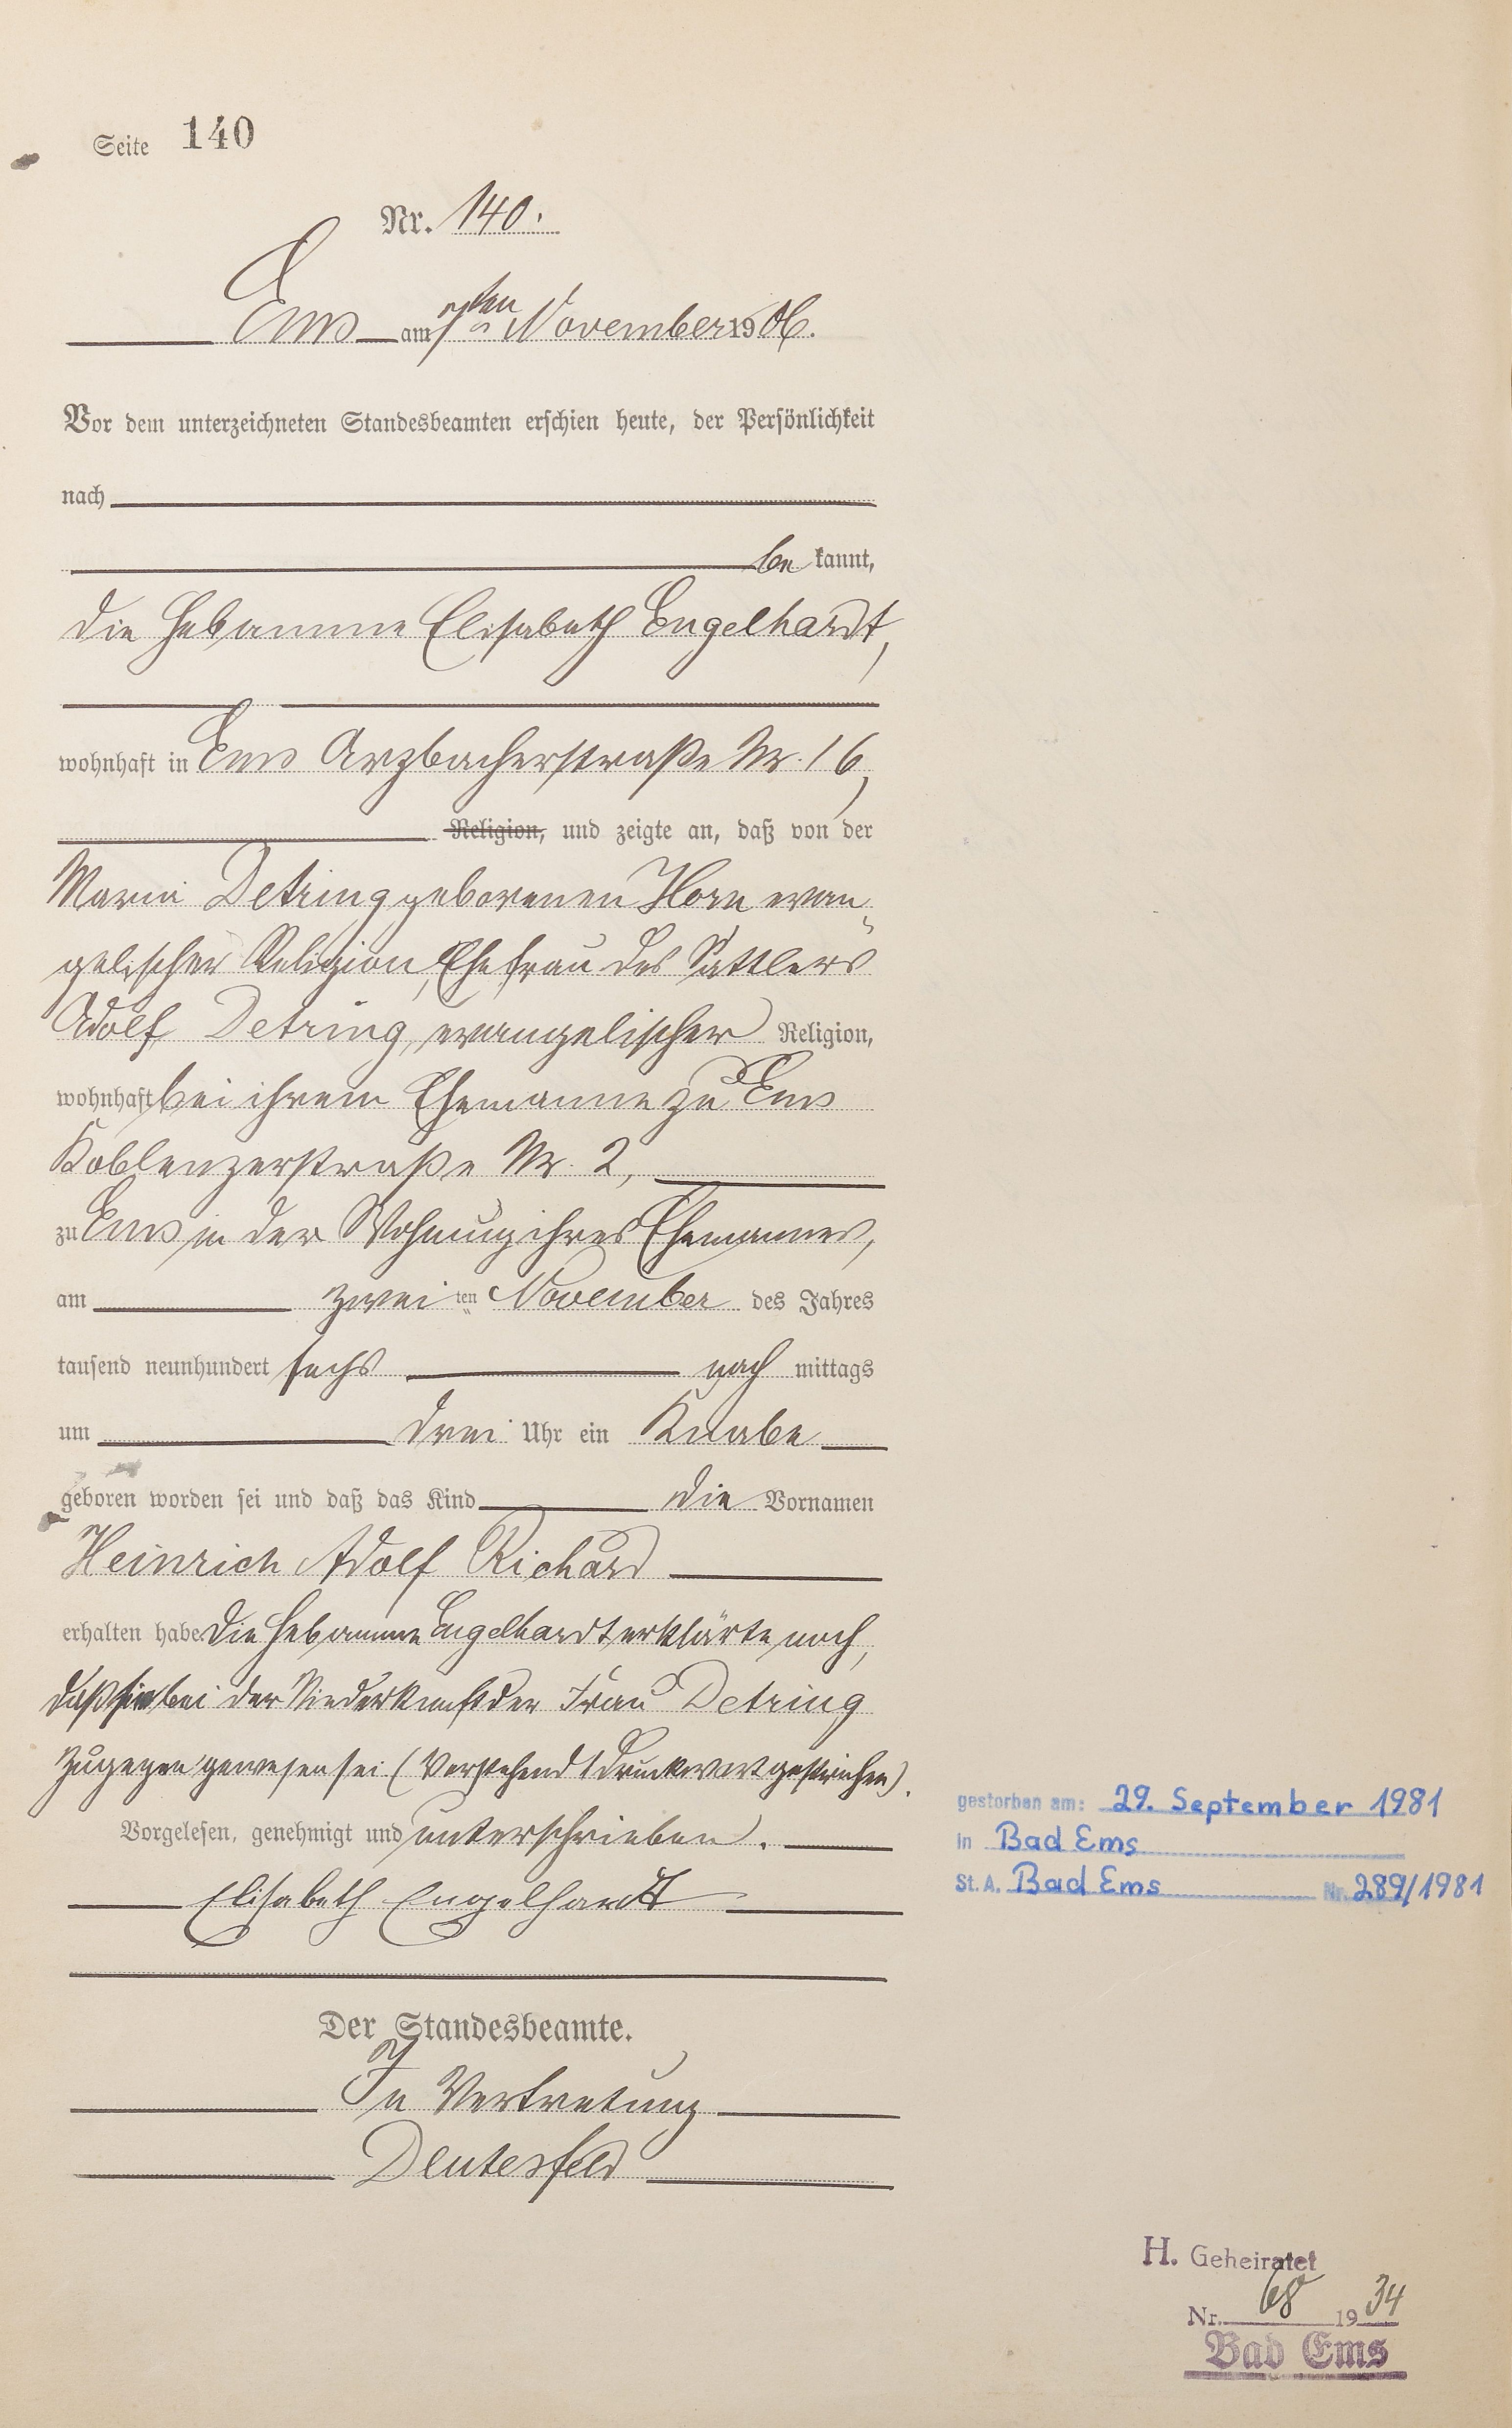 Seite 140
Nr. 140.
Ems am 7ten November 1906.
Vor dem unterzeichneten Standesbeamten erschien heute, der Persönlichkeit
nach
be kannt,
die Hebamme Elisabeth Engelhardt,
wohnhaft in Ems Arzbacherstraße Nr. 16,
Religion, und zeigte an, daß von der
Maria Detring geborenen Horn evan„
gelischer Religion, Ehefrau des Sattlers
Adolf Detring, evangelischer Religion,
wohnhaft bei ihrem Ehemanne zu Ems
Koblenzerstraße Nr. 2,
zu Ems in der Wohnung ihres Ehemannes,
am zweiten November des Jahres
tausend neunhundert sechs nach mittags
um drei Uhr ein Knabe
geboren worden sei und daß das Kind die Vornamen
Heinrich Adolf Richard
erhalten habe. Die Hebamme Engelhardt erklärte noch,
daß sie bei der Niederkunft der Frau Detring
zugegen gewesen sei (Vorstehend 1 Druckwort gestrichen).
Vorgelesen, genehmigt und unterschrieben.
Elisabeth Engelhardt
Der Standesbeamte.
In Vertretung
Deutesfeld
gestorben am: 29. September 1981
in Bad Ems
St. A. Bad Ems Nr. 289/1981
H. Geheiratet
Nr. 68 1934
Bad Ems